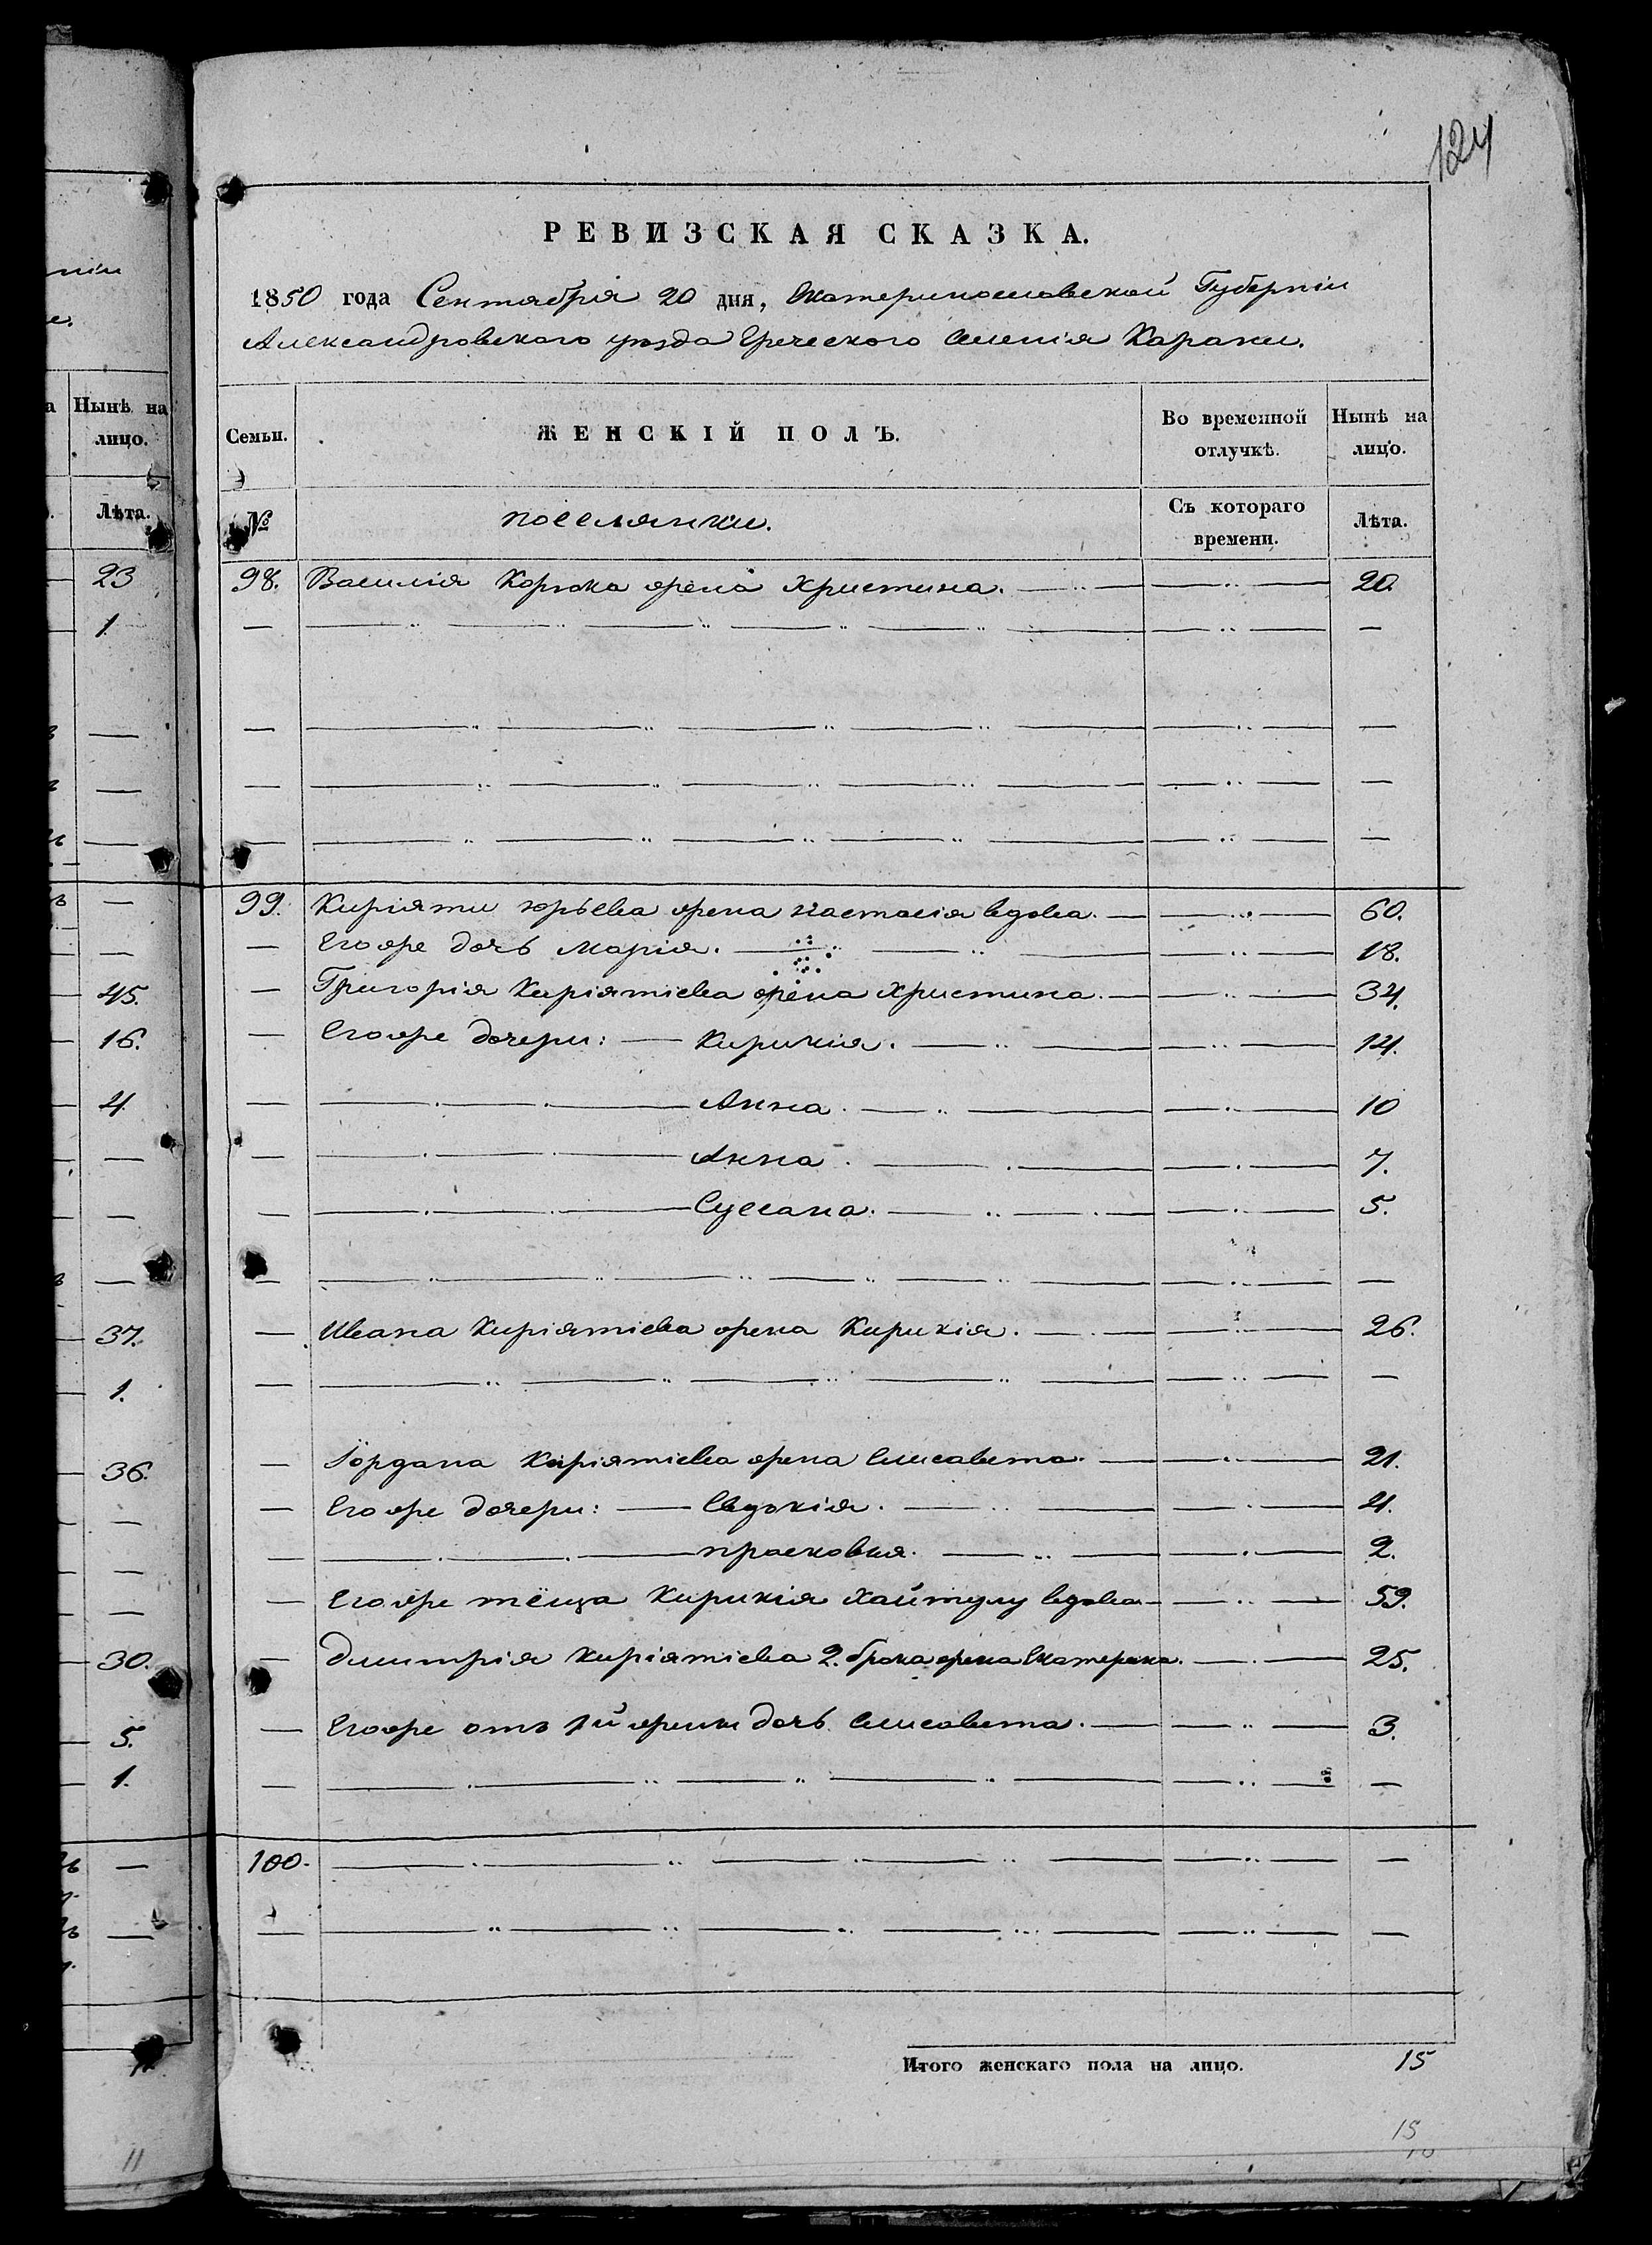 124
РЕВИЗСКАЯ СКАЗКА.
1850 года Сентября 20 дня, Екатеринославской Губерніи
Александровского уѣзда Греческого Селенія Карани.
Семьи. ЖЕНСКІЙ ПОЛЪ. Во временной отлучкѣ. Нынѣ на лицо.
№ поселянки. Съ котораго времени. Лѣта.
98. Василія Корока жена Христина. 20.
99. Киріяти юрьева жена Настасія вдова. 60.
Егоже дочь Марія. 18.
Григорія Киріятіева жена Христина. 34.
Егоже дочери: Кирикія. 14.
Анна. 10
Анна. 7.
Сусана. 5.
Ивана Киріятіева жена Кирикія. 26.
Іордана Киріятіева жена Елисавета. 21.
Егоже дочери: Евдокія. 4.
прасковья. 2.
Егоже тёща Кирикія Хайтулу вдова 59.
Дмитрія Киріятіева 2. брака жена Екатерина. 25.
Егоже отъ 1й жены дочь Елисавета. 3.
100.
Итого женскаго пола на лицо. 15
15
Нынѣ на лицо.
Лѣта.
23
1.
45.
16.
4.
37.
1.
36.
30.
5.
1.
11